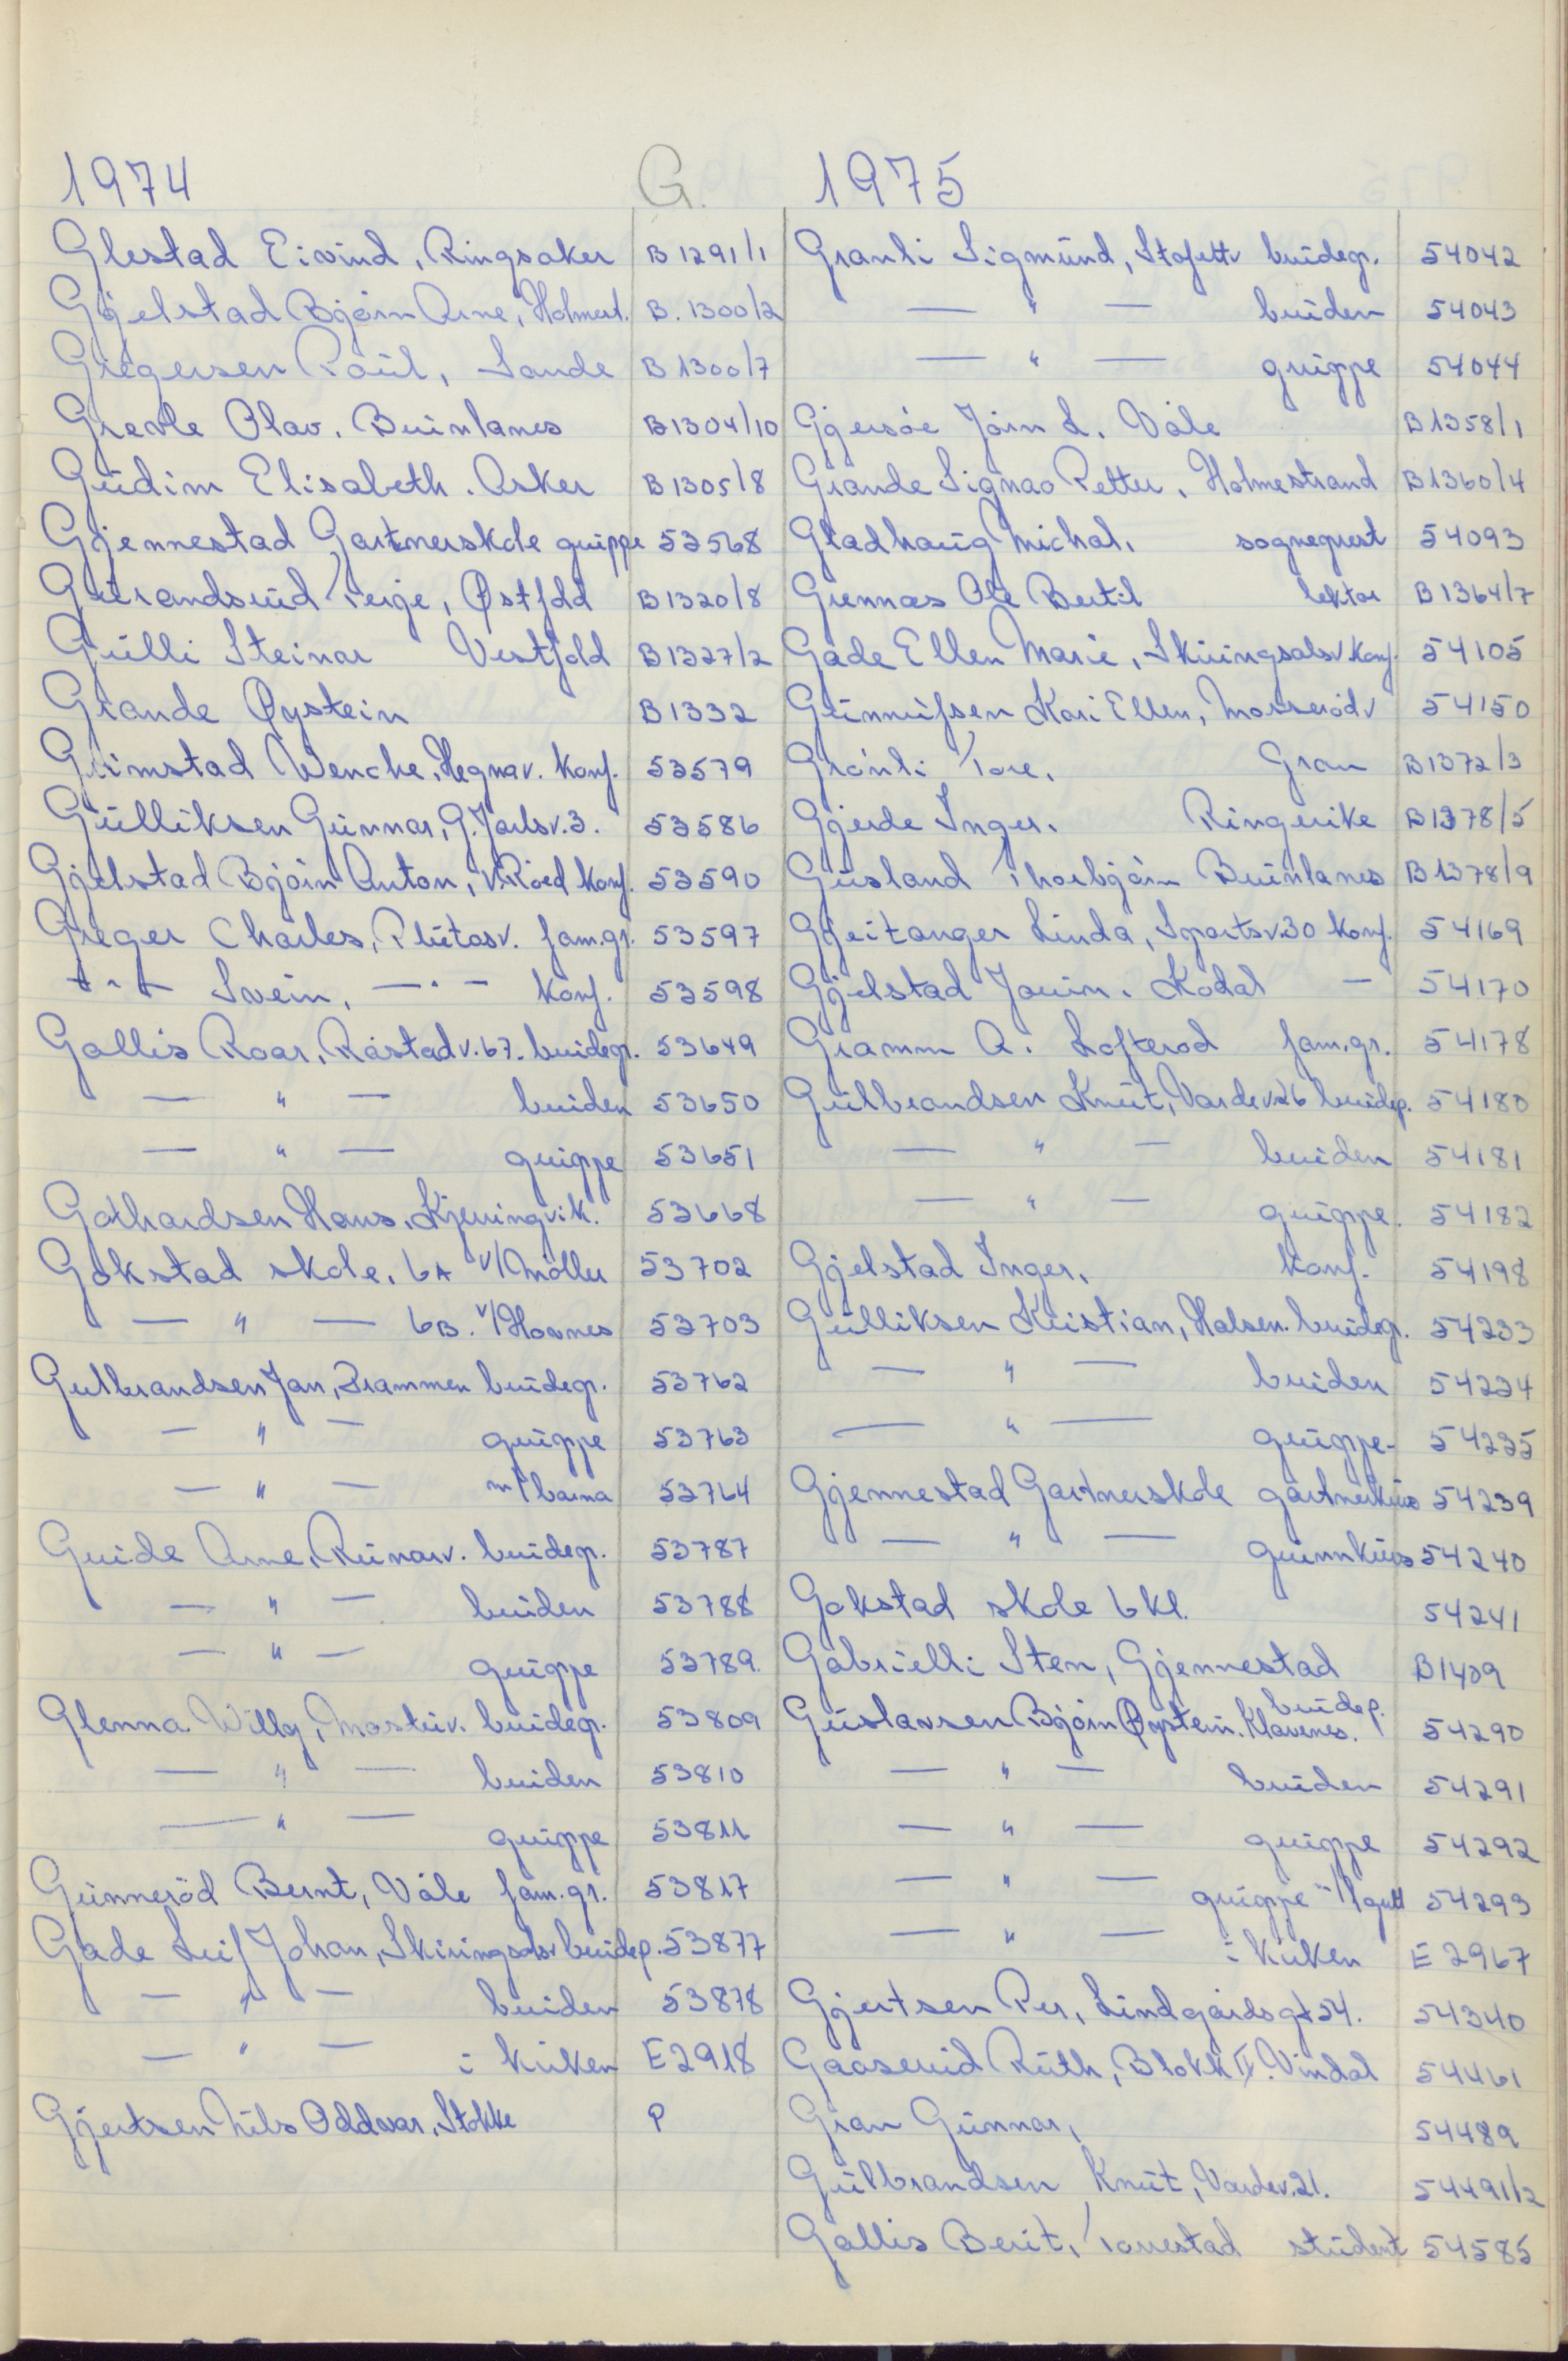 1974
G.
Glestad Eivind, Ringsaker B 1291/1
Gjelstad Bjørn Arne, Holmest. B. 1300/2
Gregersen Poul, Sande B 1300/7
Grevle Olav. Brunlanes B1304/10
Gudim Elisabeth. Asker B1305/8
Gjennestad Gartnerskole gruppe 53568
Gurandsrud Terje, Østfold B1320/8
Gulli Steinar Vestfold B1327/2
Grande Øystein B1332
Grimstad Wenche, Hegnav. konf. 53579
Gulliksen Gunnar, G. Jarlsv. 3. 53586
Gjelstad Bjørn Anton, v. Råed konf. 53590
Greger Charles, Plutosv. fam.gr. 53597
— " — Svein, — " — konf. 53598
Gallis Roar, Råstadv. 67. brudegr. 53649
— " — bruden 53650
— " — gruppe 53651
Gothardsen Hans, Kjerringvik. 53668
Gokstad skole, 6A v/Møller 53702
— " — 6B. v/Hovnes 53703
Gulbrandsen Jan, Drammen brudegr. 53762
— " — gruppe 53763
— " — m/barna 53764
Gude Arne, Runarv. brudegr. 53787
— " — bruden 53788
— " — gruppe 53789.
Glenna Willy, Mostuv. brudegr. 53809
— " — bruden 53810
— " — gruppe 53811
Gunnerød Bernt, Våle fam.gr. 53817
Gade Leif Johan, Skiringsalsv brudegr. 53877
— " — bruden 53878
— " — i kirken E2918
Gjertsen Nils Oddvar, Stokke P
1975
Granli Sigmund, Stofettv brudegr. 54042
— " — bruden 54043
— " — gruppe 54044
Gjersøe Jørn L. Våle B1358/1
Grande Sigmao Petter, Holmestrand B1360/4
Gladhaug Michal, sogneprest 54093
Grennæs Ole Bertil lektor B1364/7
Gade Ellen Marie, Skiringsalsv konf. 54105
Gunnufsen Kari Ellen, Mosserødv 54150
Grønli Tore, Gran B1372/3
Gjerde Inger, Ringerike B1378/5
Gusland Thorbjørn Brunlanes B1378/9
Gjeitanger Linda, Sportsv.30 konf. 54169
Gjelstad Jorun. Kodal — 54170
Gramm A. Lofterød fam.gr. 54178
Gulbrandsen Knut, Vardev26 brudegr. 54180
— " — bruden 54181
— " — gruppe. 54182
Gjelstad Inger, konf. 54198
Gulliksen Kristian, Halsen. brudegr. 54233
— " — bruden 54234
— " — gruppe 54235
Gjennestad Gartnerskole gartnerkurs 54239
— " — grunnkurs 54240
Gokstad skole 6 kl. 54241
Gabrielli Sten, Gjennestad B1409
Gustavsen Bjørn Øystein. Klavenes. brudegr. 54290
— " — bruden 54291
— " — gruppe 54292
— " — gruppe m/1 gutt 54293
— " — i kirken E 2967
Gjertsen Per, Lindgårdsgt 54. 54340
Gaaserud Ruth, Blokk IV. Vindal 54461
Gran Gunnar, 54489
Gulbrandsen Knut, Vardev.21. 54491/2
Gallis Berit, Torrestad student 54585